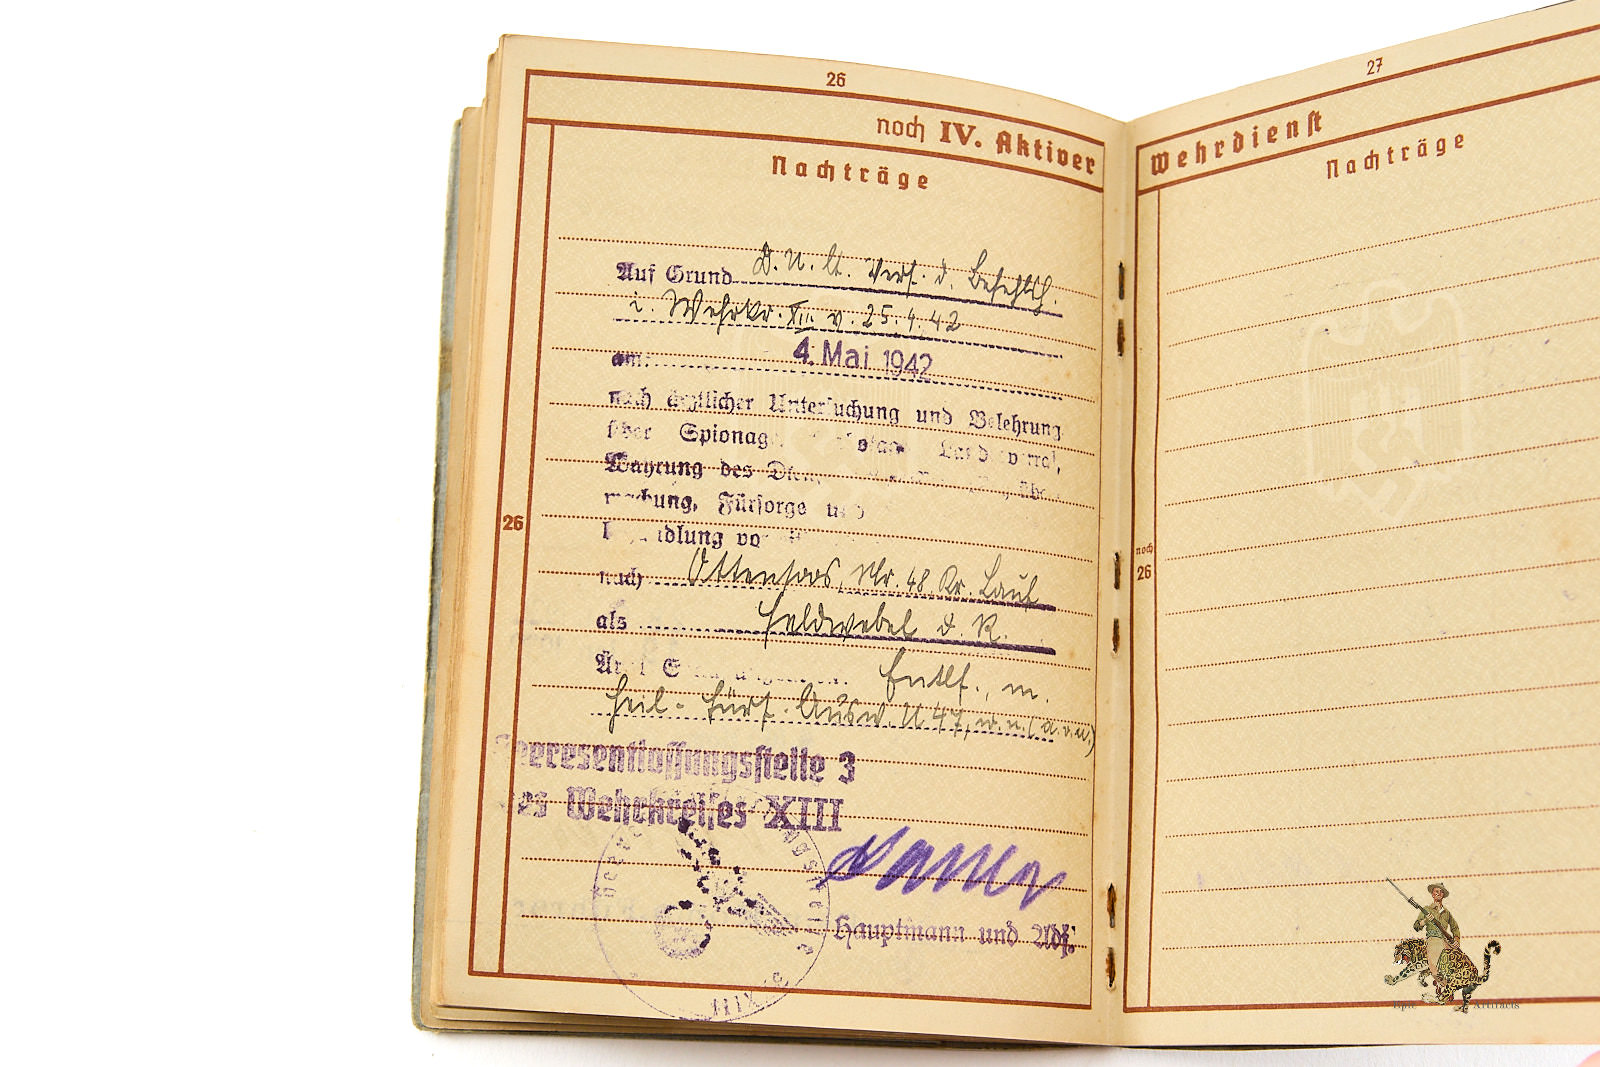 26
noch IV. Aktiver
Nachträge
Auf Grund D. U. lt. Verf. d. Befehlsh.
i. Wehrkr. XIII v. 25.4.42
am: 4. Mai 1942
nach ärztlicher Untersuchung und Belehrung
über Spionage, Landesverrat,
Wahrung des
Fürsorge und
nach Ottensoos, Nr. 48, Kr. Lauf
als Feldwebel d. R.
Entlf., m.
Heil-Fürs. Ausw. U 47, w.u. (a.v.u.)
Heeresentlassungsstelle 3
des Wehrkreises XIII
Hauptmann und Adj.
XIII
26
27
Wehrdienst
Nachträge
noch
26
Epic Artifacts